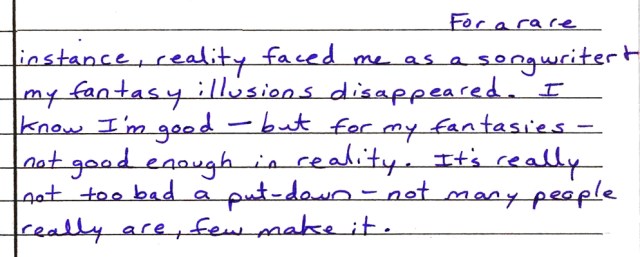 For a rare
instance, reality faced me as a songwriter +
my fantasy illusions disappeared. I
know I'm good – but for my fantasies –
not good enough in reality. It's really
not too bad a put-down – not many people
really are, few make it.